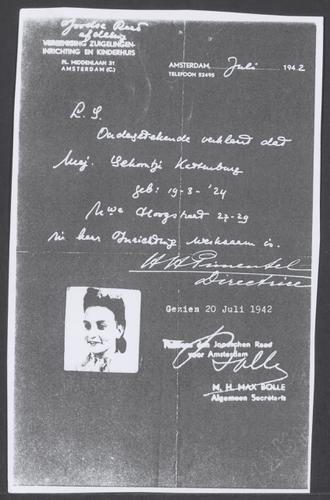 Joodse Raad
afdeling
VEREENIGING ZUIGELINGEN-
INRICHTING EN KINDERHUIS
PL. MIDDENLAAN 31
AMSTERDAM (C.)
AMSTERDAM, Juli 1942
TELEFOON 52495
L. S.
Ondergetekende verklaart dat
Mej. Schoontje Kattenburg
geb: 19-3-'24
Nwe Hoogstraat 27-29
in haar Inrichting werkzaam is.
H H Pimentel
Directrice
Gezien 20 Juli 1942
van den Joodschen Raad
voor Amsterdam
Bolle
M. H. MAX BOLLE
Algemeen Secretaris